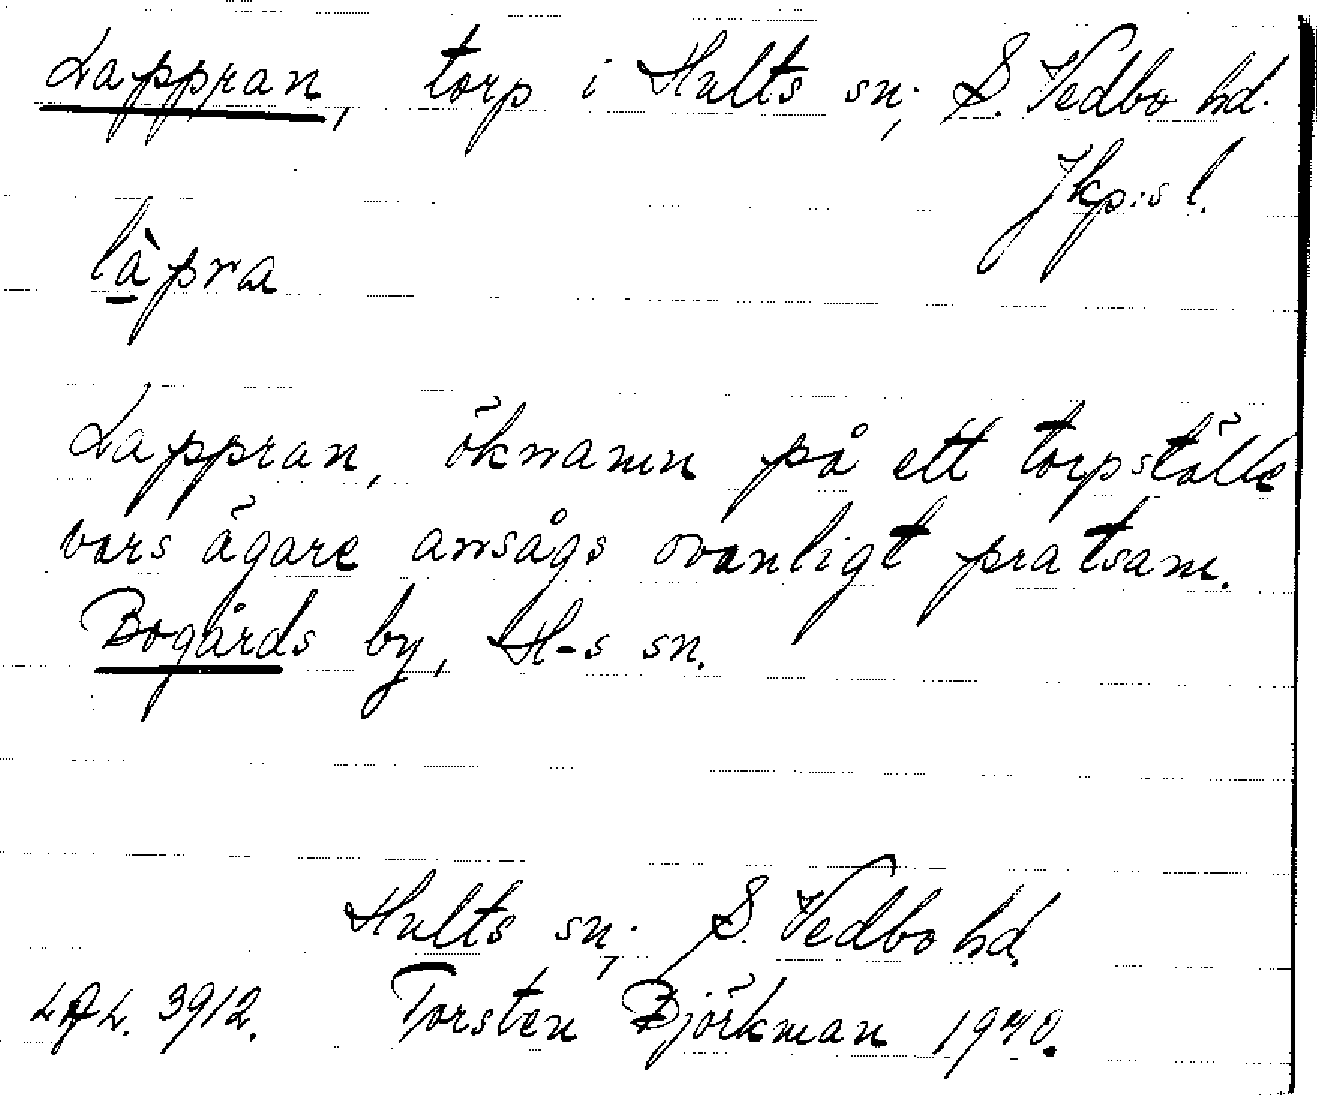 Lappran, torp i Hults sn; S. Vedbo hd.
Jkp:s l.
làpra
Lappran, öknamn på ett torpställe
vars ägare ansågs ovanligt pratsam.
Bogårds by, H-s sn.
Hults sn; S. Vedbo hd.
3912. Torsten Björkman 1940.